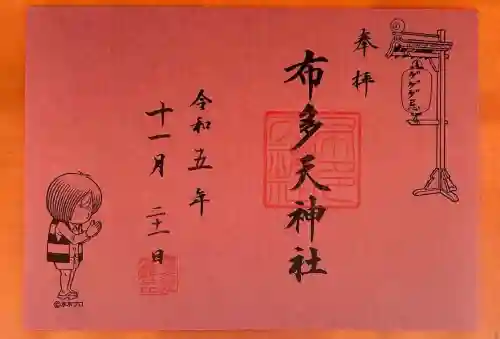 ゲゲゲ忌
奉拝
布多天神社
令和五年
十一月二十一日
©水木プロ